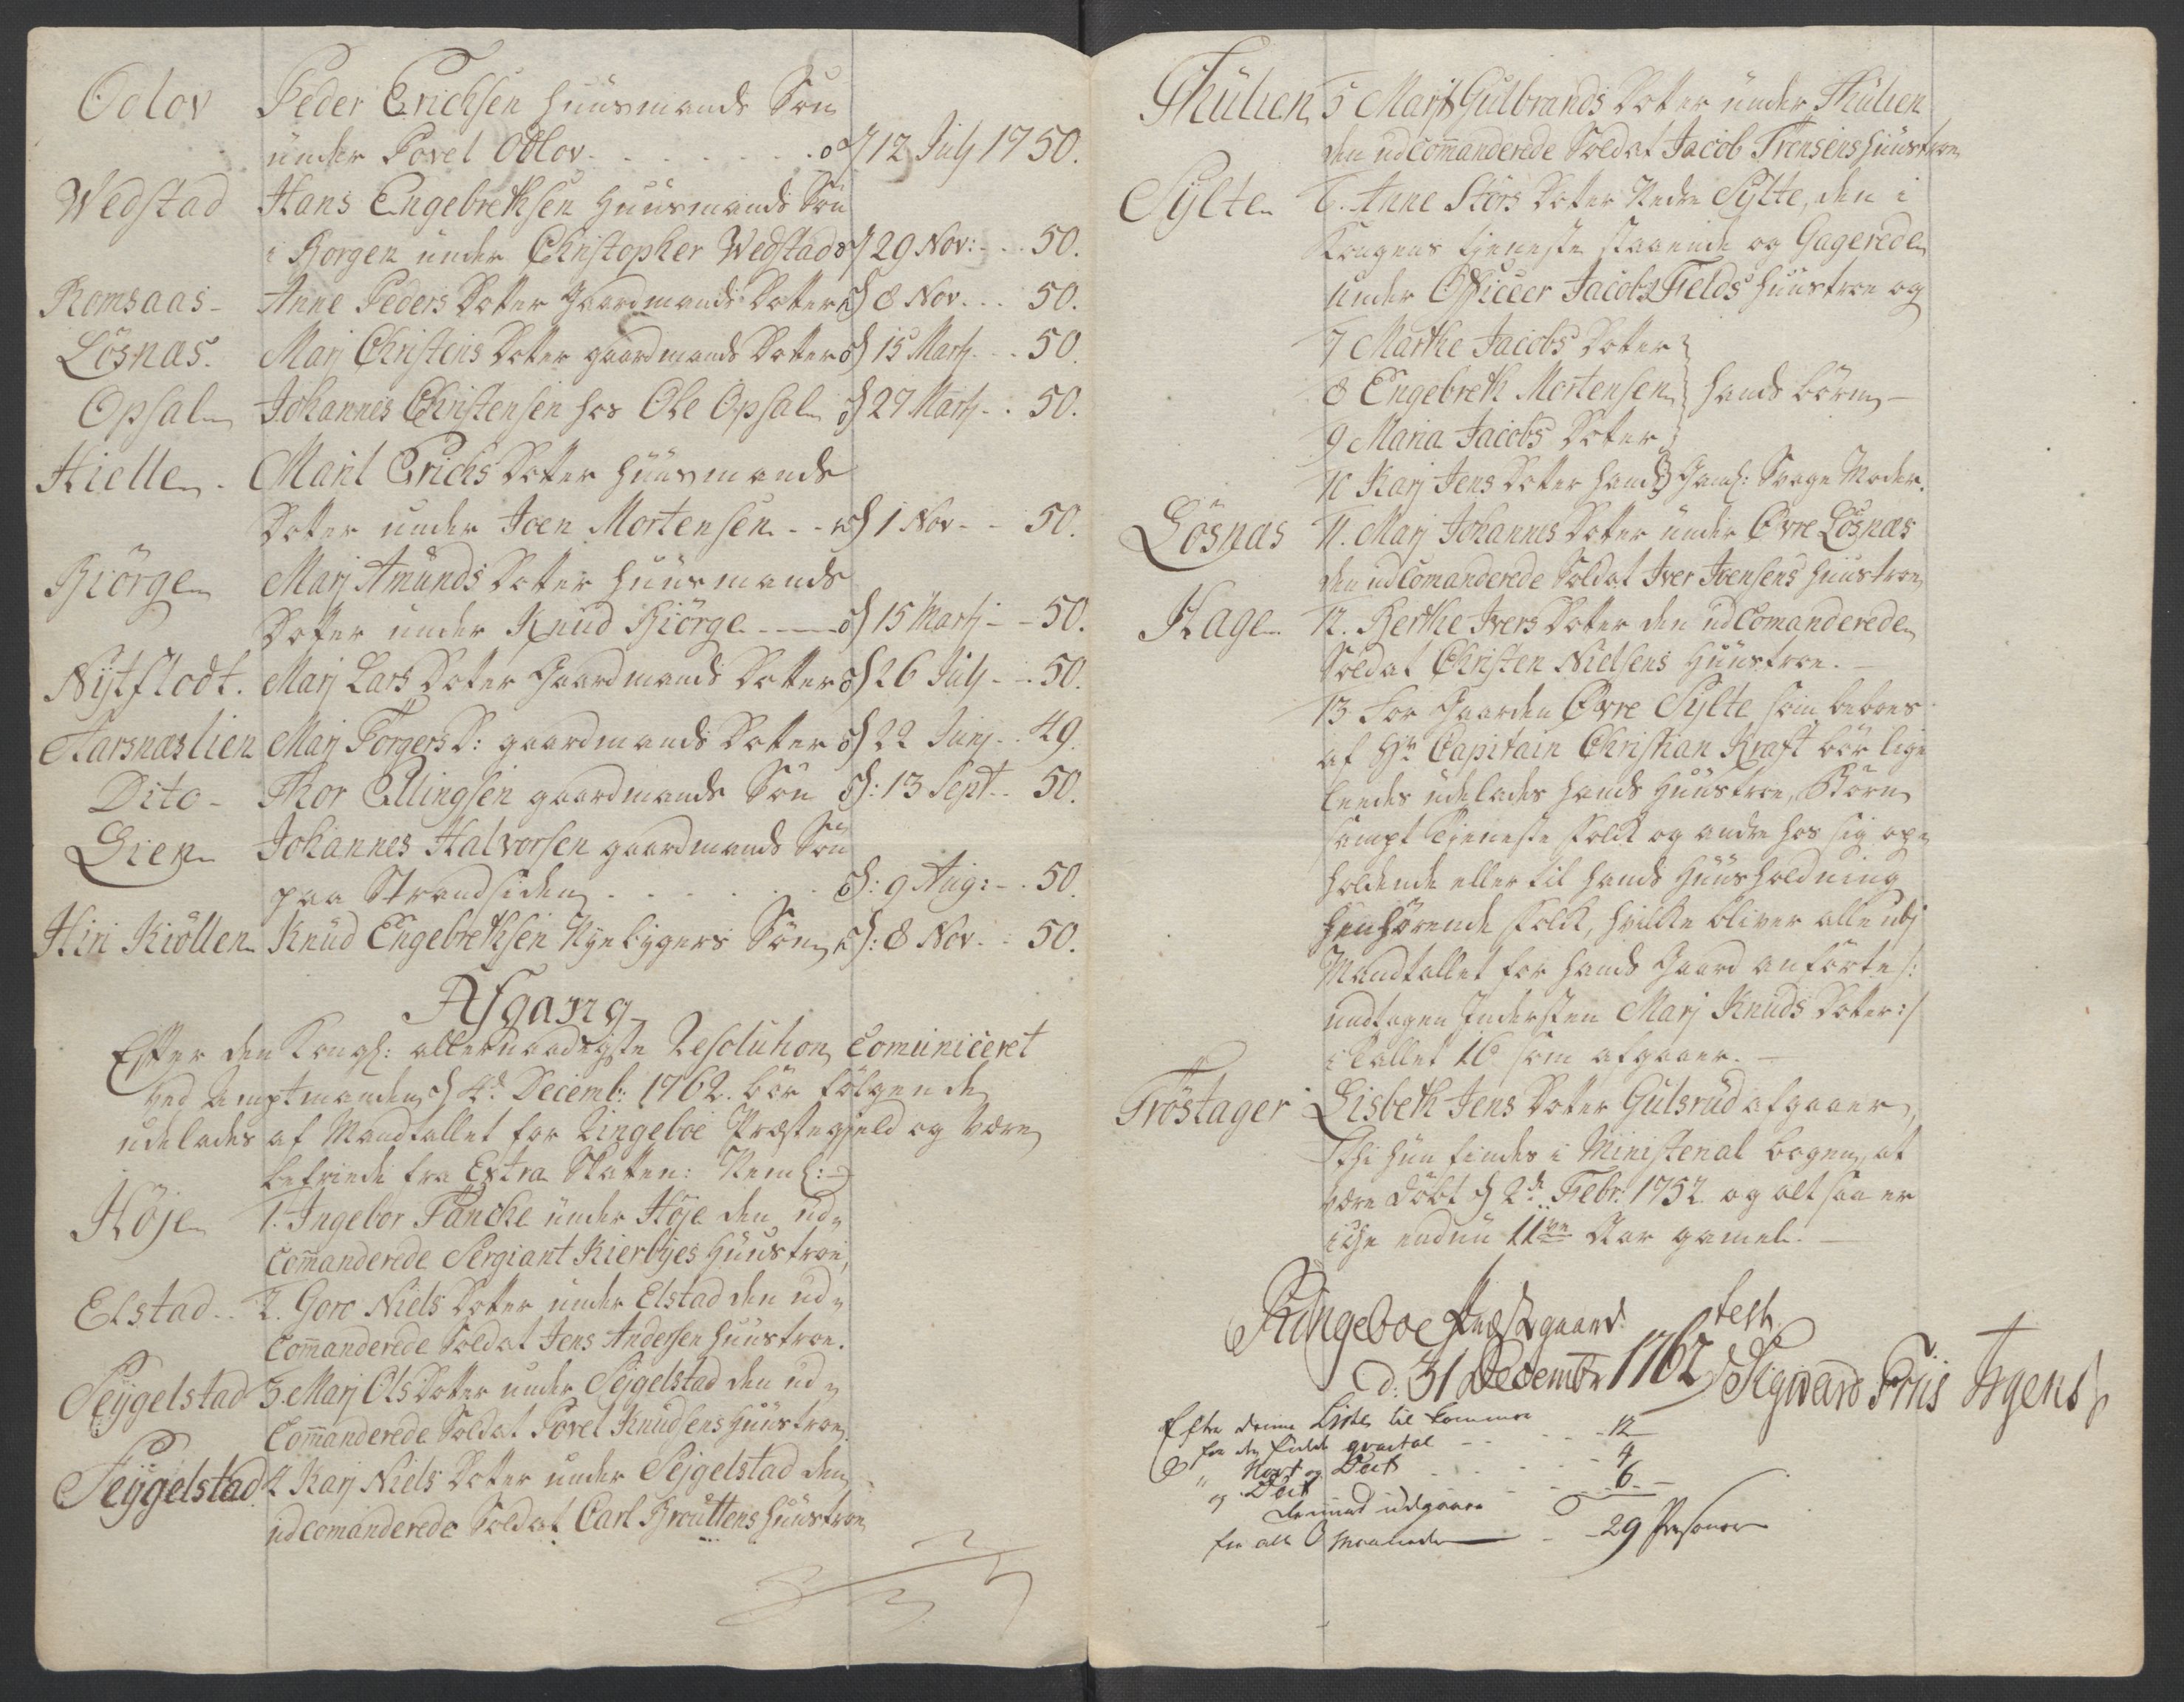 Odlov Peder Erichsen Huusmands Søn
under Povel Odlov . . . . . . . 12 July 1750.
Wedstad Hans Engebrethsen Huusmands Søn
i Borgen under Christopher Wedstad 29 Nov: - . . 50.
Romsaas - Anne Peders Dotter Gaardmands Dotter 8 Nov . . . 50.
Lösnas. Marj Christens Dotter gaardmands Dotter 15 Martj . . . 50.
Opsal Johannes Christensen hos Ole Opsal 27 Martj - . 50.
Hielle . Marit Erichs Dotter Huusmands
Dotter under Joen Mortensen . . 1 Nov - - 50.
Biörge Marj Amunds Dotter Huusmands
Dotter under Knud Biörge - - - 15 Martj - - 50.
Nÿtflodt. Marj Lars Dotter Gaardmands Dotter 26 July - . 50.
Aarsnæslien Marj Torgers D: gaardmands Dotter 22 Junj . . 49.
Dito - Thor Ellingsen gaardmands Søn d: 13 Sept . . 50.
Lien Johannes Halvorsen gaardmands Søn
paa Strandsiden . . . . . . d: 9 Aug: - . 50.
Hiri Kiöllen Knud Engebrethsen Nyebygers Søn d: 8 Nov . . 50.
Afgang
Efter den Kongl: allernaadigste Resolution Comuniceret
ved Amptmanden d 4d Decemb: 1762. bör følgende
udelades af Mandtallet for Ringeboe Præstegield og være
befriede fra Extra Skatten: Neml:
Höje 1. Ingebor Fancke under Höje den ud=
Commanderede Sergiant Kierbÿes Huustroe,
Elstad . . 2. Goro Niels Dotter under Elstad den ud=
Commanderede Soldat Jens Andersen Huustroe.
Seÿgelstad 3. Marj Ols Dotter under Sejgelstad den ud=
Commanderede Soldat Povel Knudsens Huustroe.
Seÿgelstad 4 Karj Niels Dotter under Sejgelstad den
udcomanderede Soldat Carl Brouttens Huustroe
Thulien 5 Marjt Gulbrands Dotter under Thulien
den udcommanderede Soldat Jacob Tronsens Huustroe
Sÿlte 6. Anne Stors Dotter Nedre Sÿlte, den i
Kongens tieneste staaende og Gagerede
Under Officeer Jacob Fields Huustroe og
7 Marthe Jacobs Dotter
8 Engebreth Mortensen hands börn -
9 Maria Jacobs Dotter
10 Karj Jens Dotter hands Gaml: Svage Moder.
Lösnas 11. Marj Johannes Dotter under Øvre Lösnæs
den udcomanderede Soldat Iver Ivensens Huustroe
Hage 12. Berthe Ivers Dotter den udcomanderede
Soldat Christen Nielsens Huustroe. -
13 For Gaarden Øvre Sÿlte som beboes
af Hr Capitain Christian Kraft bör lige
ledes udelades hands Huustroe, Börn
sampt Tieneste Folck og andre hos sig op=
holdende eller til hands Huusholdning
henhörende Folck, hvilke bliver alle ubj
Mandtallet for hands Gaard anförte /:
undtagen Indersten Marj Knuds Dotter :/
i Tallet 16 som afgaaer. -
Tröstager Lisbeth Jens Dotter Gulsrud afgaaer,
Thi hun findes i Ministerial bogen, at
være döbt d 2d Febr: 1752. og altsaa er
iche endnu 11ve Aar gamel. -
Ringeboe Præstgaard
d: 31 Decembr 1762
test
Sigvard Friis Irgens
Efter denne Liste til kommer
for den sidste qvartal - - - - 12
" Novt og Dect . . . . . 4
og Dect - - - - 6 -
- 29 Personer
for alle Maaneder